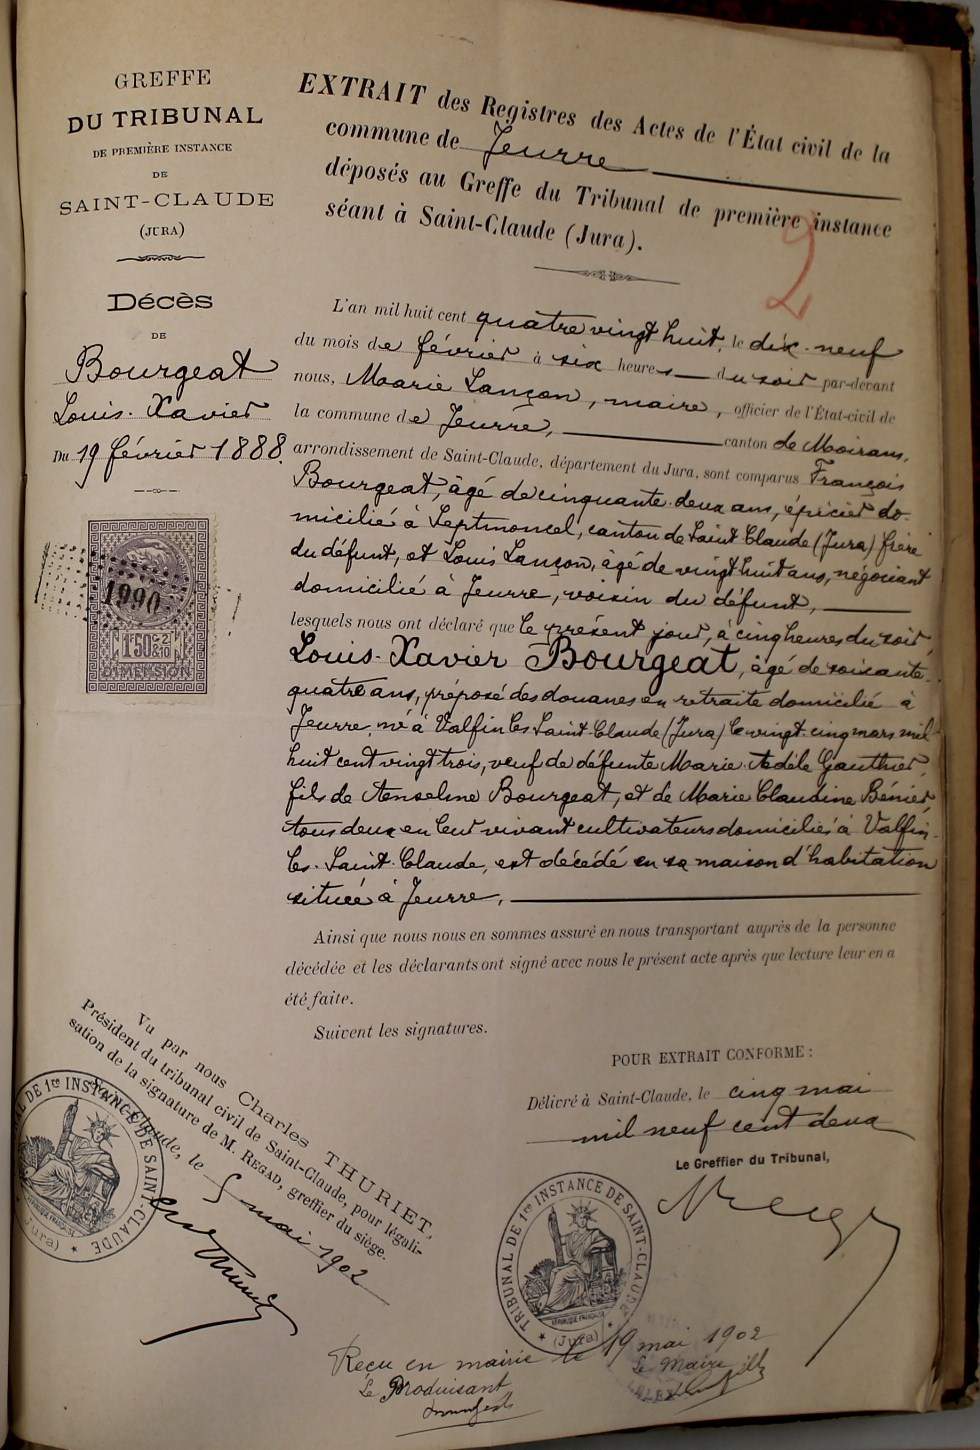 GREFFE
DU TRIBUNAL
DE PREMIÈRE INSTANCE
DE
SAINT-CLAUDE
(JURA)
Décès
DE
Bourgeat
Louis-Xavier
Du 19 février 1888.
1990
1F50c 2/10
DIMENSION
EXTRAIT des Registres des Actes de l'État civil de la
commune de Jeurre
déposés au Greffe du Tribunal de première instance
séant à Saint-Claude (Jura).
2
L'an mil huit cent quatre vingt huit, le dix-neuf
du mois de février à six heures du soir par-devant
nous, Marie Lançon, maire, officier de l'État-civil de
la commune de Jeurre, canton de Moirans,
arrondissement de Saint-Claude, département du Jura, sont comparus François
Bourgeat, âgé de cinquante-deux ans, épicier do-
micilié à Septmoncel, canton de Saint Claude (Jura) frère
du défunt, et Louis Lançon, âgé de vingt huit ans, négociant
domicilié à Jeurre, voisin du défunt,
lesquels nous ont déclaré que le présent jour, à cinq heures du soir,
Louis-Xavier Bourgeat, âgé de soixante-
quatre ans, préposé des douanes en retraite domicilié à
Jeurre, né à Valfin les Saint-Claude (Jura) le vingt-cinq mars mil
huit cent vingt trois, veuf de défunte Marie-Adèle Gauthier,
fils de Anselme Bourgeat, et de Marie Claudine Bénier,
tous deux en leur vivant cultivateurs domiciliés à Valfin-
les-Saint-Claude, est décédé en sa maison d'habitation
située à Jeurre,
Ainsi que nous nous en sommes assuré en nous transportant auprès de la personne
décédée et les déclarants ont signé avec nous le présent acte après que lecture leur en a
été faite.
Suivent les signatures.
POUR EXTRAIT CONFORME :
Délivré à Saint-Claude, le cinq mai
mil neuf cent deux
Le Greffier du Tribunal,
TRIBUNAL DE 1re INSTANCE DE SAINT-CLAUDE
(Jura)
Vu par nous Charles THURIET,
Président du tribunal civil de Saint-Claude, pour légali-
sation de la signature de M. REGAD, greffier du siège.
Saint-Claude, le 5 mai 1902
TRIBUNAL DE 1re INSTANCE DE SAINT-CLAUDE
(Jura)
Reçu en mairie le 19 mai 1902
Le Produisant
Le Maire